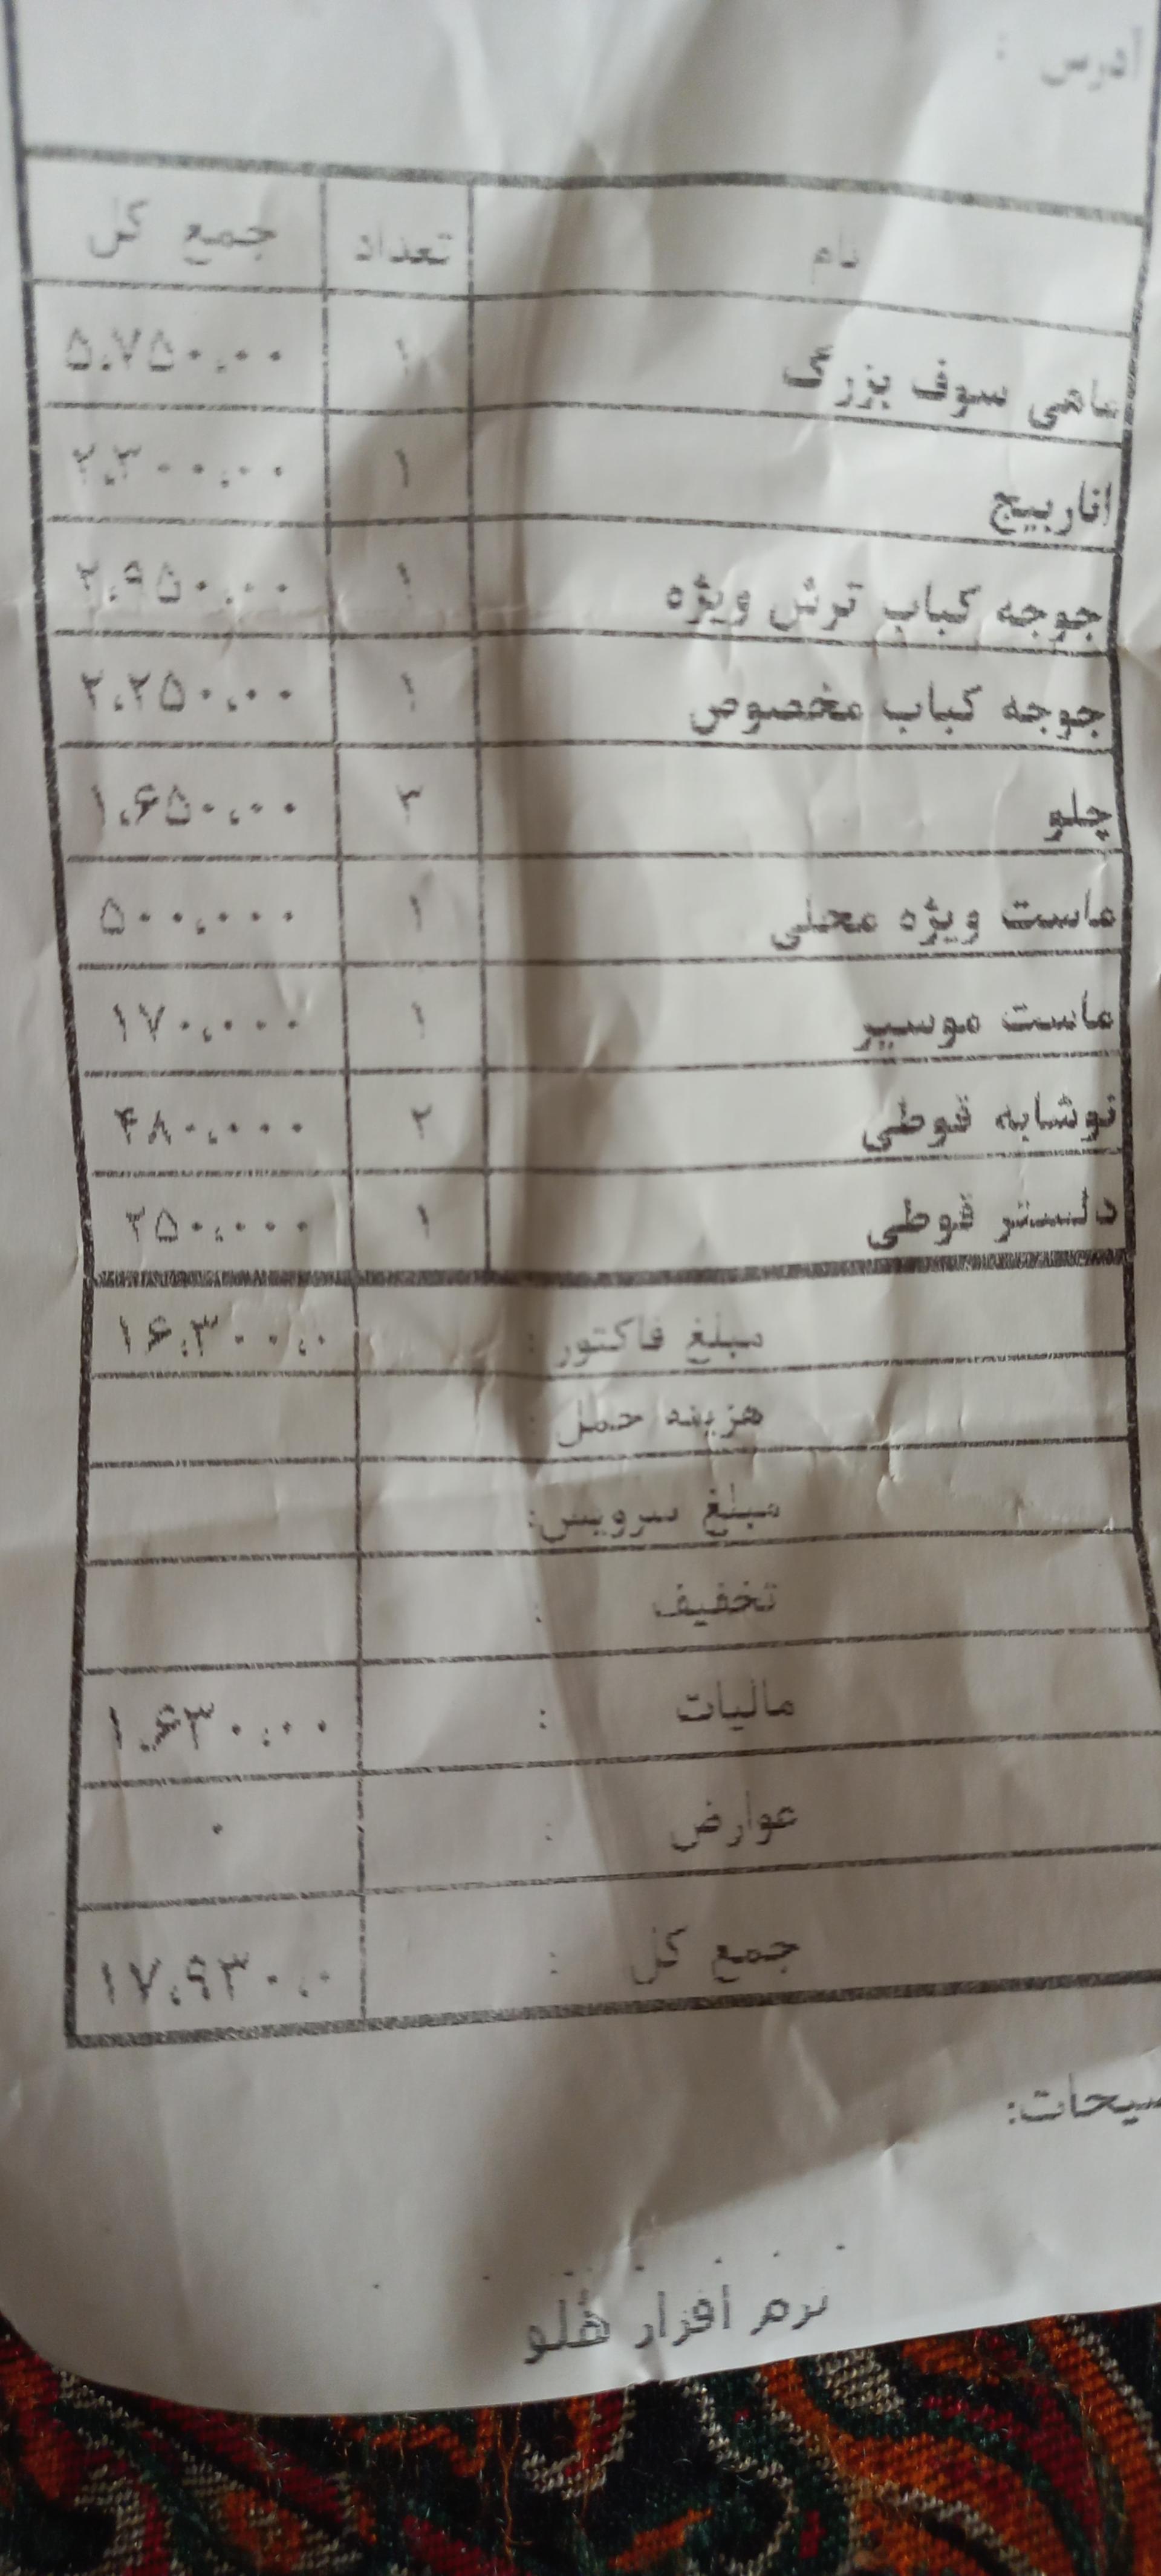 آدرس :
نام تعداد جمع کل
ماهی سوف بزرگ ۱ ۵،۷۵۰،۰۰
اناربیج ۱ ۲،۳۰۰،۰۰
جوجه کباب ترش ویژه ۱ ۲،۹۵۰،۰۰
جوجه کباب مخصوص ۱ ۲،۲۵۰،۰۰
چلو ۳ ۱،۶۵۰،۰۰
ماست ویژه محلی ۱ ۵۰۰،۰۰۰
ماست موسیر ۱ ۱۷۰،۰۰۰
نوشابه قوطی ۲ ۴۸۰،۰۰۰
دلستر قوطی ۱ ۲۵۰،۰۰۰
مبلغ فاکتور : ۱۶،۳۰۰،۰
هزینه حمل :
مبلغ سرویس:
تخفیف :
مالیات : ۱،۶۳۰،۰۰
عوارض : ۰
جمع کل : ۱۷،۹۳۰،۰
نرم افزار هلو